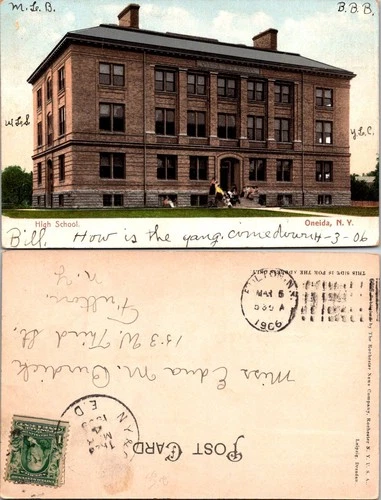 M. L. B.
B. B. B.
W. L. S
Y. L. C.
High School.
Oneida, N. Y.
Bill. How is the gang. come down 4-3-06
THIS SIDE IS FOR THE ADDRESS ONLY
POST CARD
Miss Edna M. Burdick
153 W Third St.
Fulton,
N. Y.
FULTON, N.Y.
1906
N.Y. &
R.P.O.
by The Rochester News Company, Rochester N. Y. U. S. A.
Leipzig, Dresden